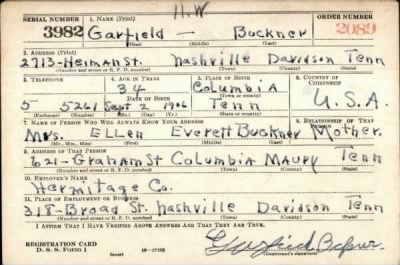 H.W
SERIAL NUMBER 1. NAME (Print) ORDER NUMBER
3982 Garfield — Buckner 2089
(First) (Middle) (Last)
2. ADDRESS (Print)
2713-Heiman St. Nashville Davidson Tenn
(Number and street or R. F. D. number) (Town) (County) (State)
3. TELEPHONE 4. AGE IN YEARS 5. PLACE OF BIRTH 6. COUNTRY OF CITIZENSHIP
34 Columbia
DATE OF BIRTH (Town or county)
5 5261 Sept 2 1906 Tenn U.S.A.
(Exchange) (Number) (Mo.) (Day) (Yr.) (State or country)
7. NAME OF PERSON WHO WILL ALWAYS KNOW YOUR ADDRESS 8. RELATIONSHIP OF THAT PERSON
Mrs. Ellen Everett Buckner Mother.
(Mr., Mrs., Miss) (First) (Middle) (Last)
9. ADDRESS OF THAT PERSON
621-Graham St Columbia Maury Tenn
(Number and street or R. F. D. number) (Town) (County) (State)
10. EMPLOYER'S NAME
Hermitage Co.
11. PLACE OF EMPLOYMENT OR BUSINESS
318-Broad St. Nashville Davidson Tenn
(Number and street or R. F. D. number) (Town) (County) (State)
I AFFIRM THAT I HAVE VERIFIED ABOVE ANSWERS AND THAT THEY ARE TRUE.
REGISTRATION CARD
D. S. S. Form 1 (over) 16—17105
(Registrant's signature)